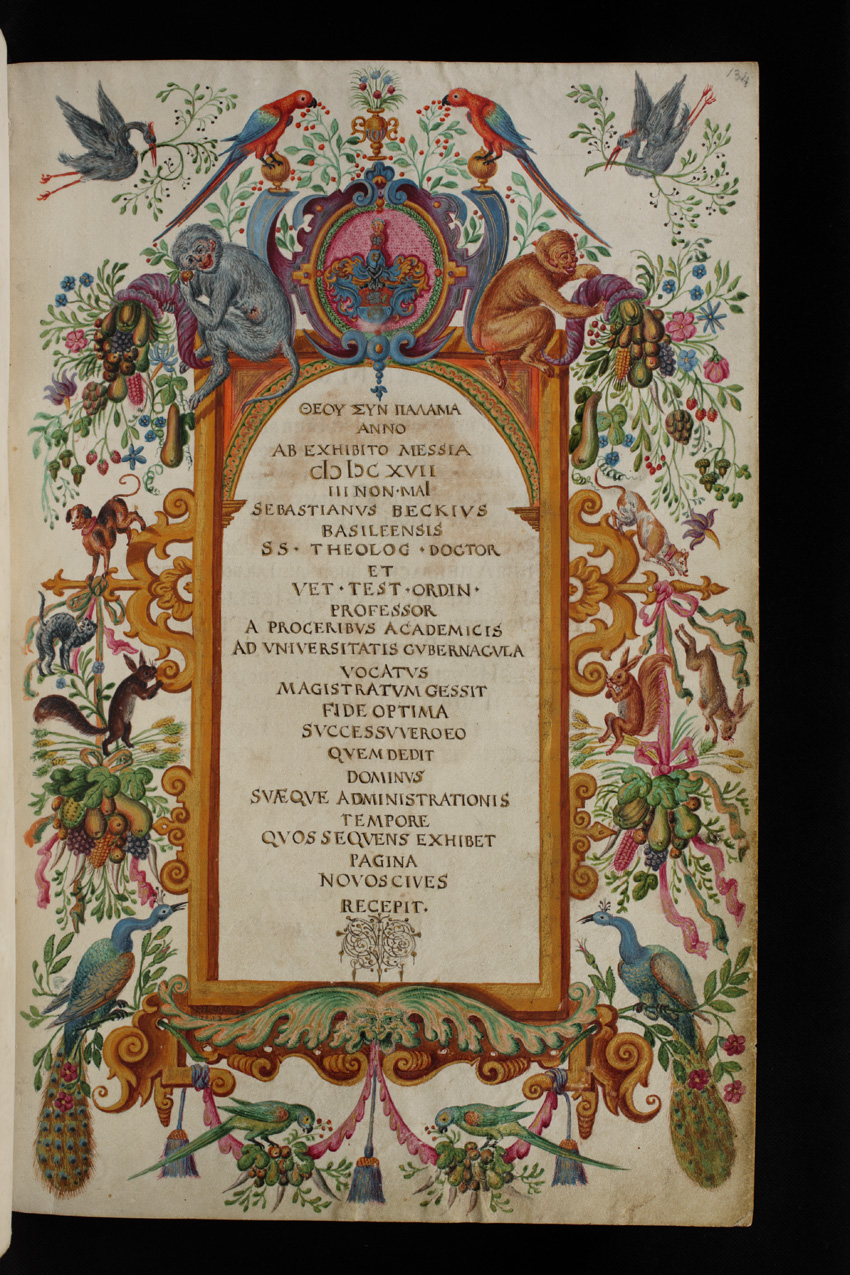 134
ΘΕΟΥ ΣΥΝ ΠΑΛΑΜΑ
ANNO
AB EXHIBITO MESSIA
CIↃ IↃC XVII
III NON · MAI
SEBASTIANVS BECKIVS
BASILEENSIS
SS · THEOLOG · DOCTOR
ET
VET · TEST · ORDIN ·
PROFESSOR
A PROCERIBVS ACADEMICIS
AD VNIVERSITATIS GVBERNACVLA
VOCATVS
MAGISTRATVM GESSIT
FIDE OPTIMA
SVCCESSV VERO EO
QVEM DEDIT
DOMINVS
SVÆQVE ADMINISTRATIONIS
TEMPORE
QVOS SEQVENS EXHIBET
PAGINA
NOVOS CIVES
RECEPIT.